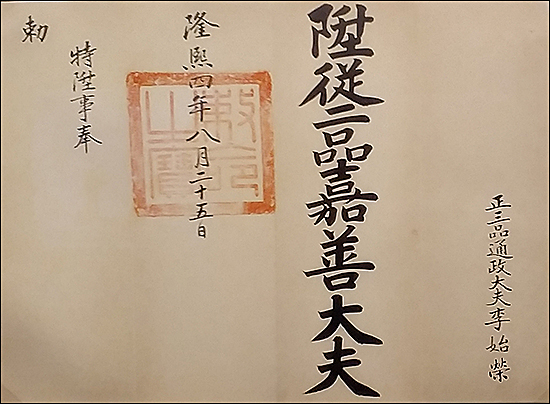 正三品通政大夫李始榮
陞從二品嘉善大夫
隆熙四年八月二十五日
特陞事奉
勅
敕命之寶